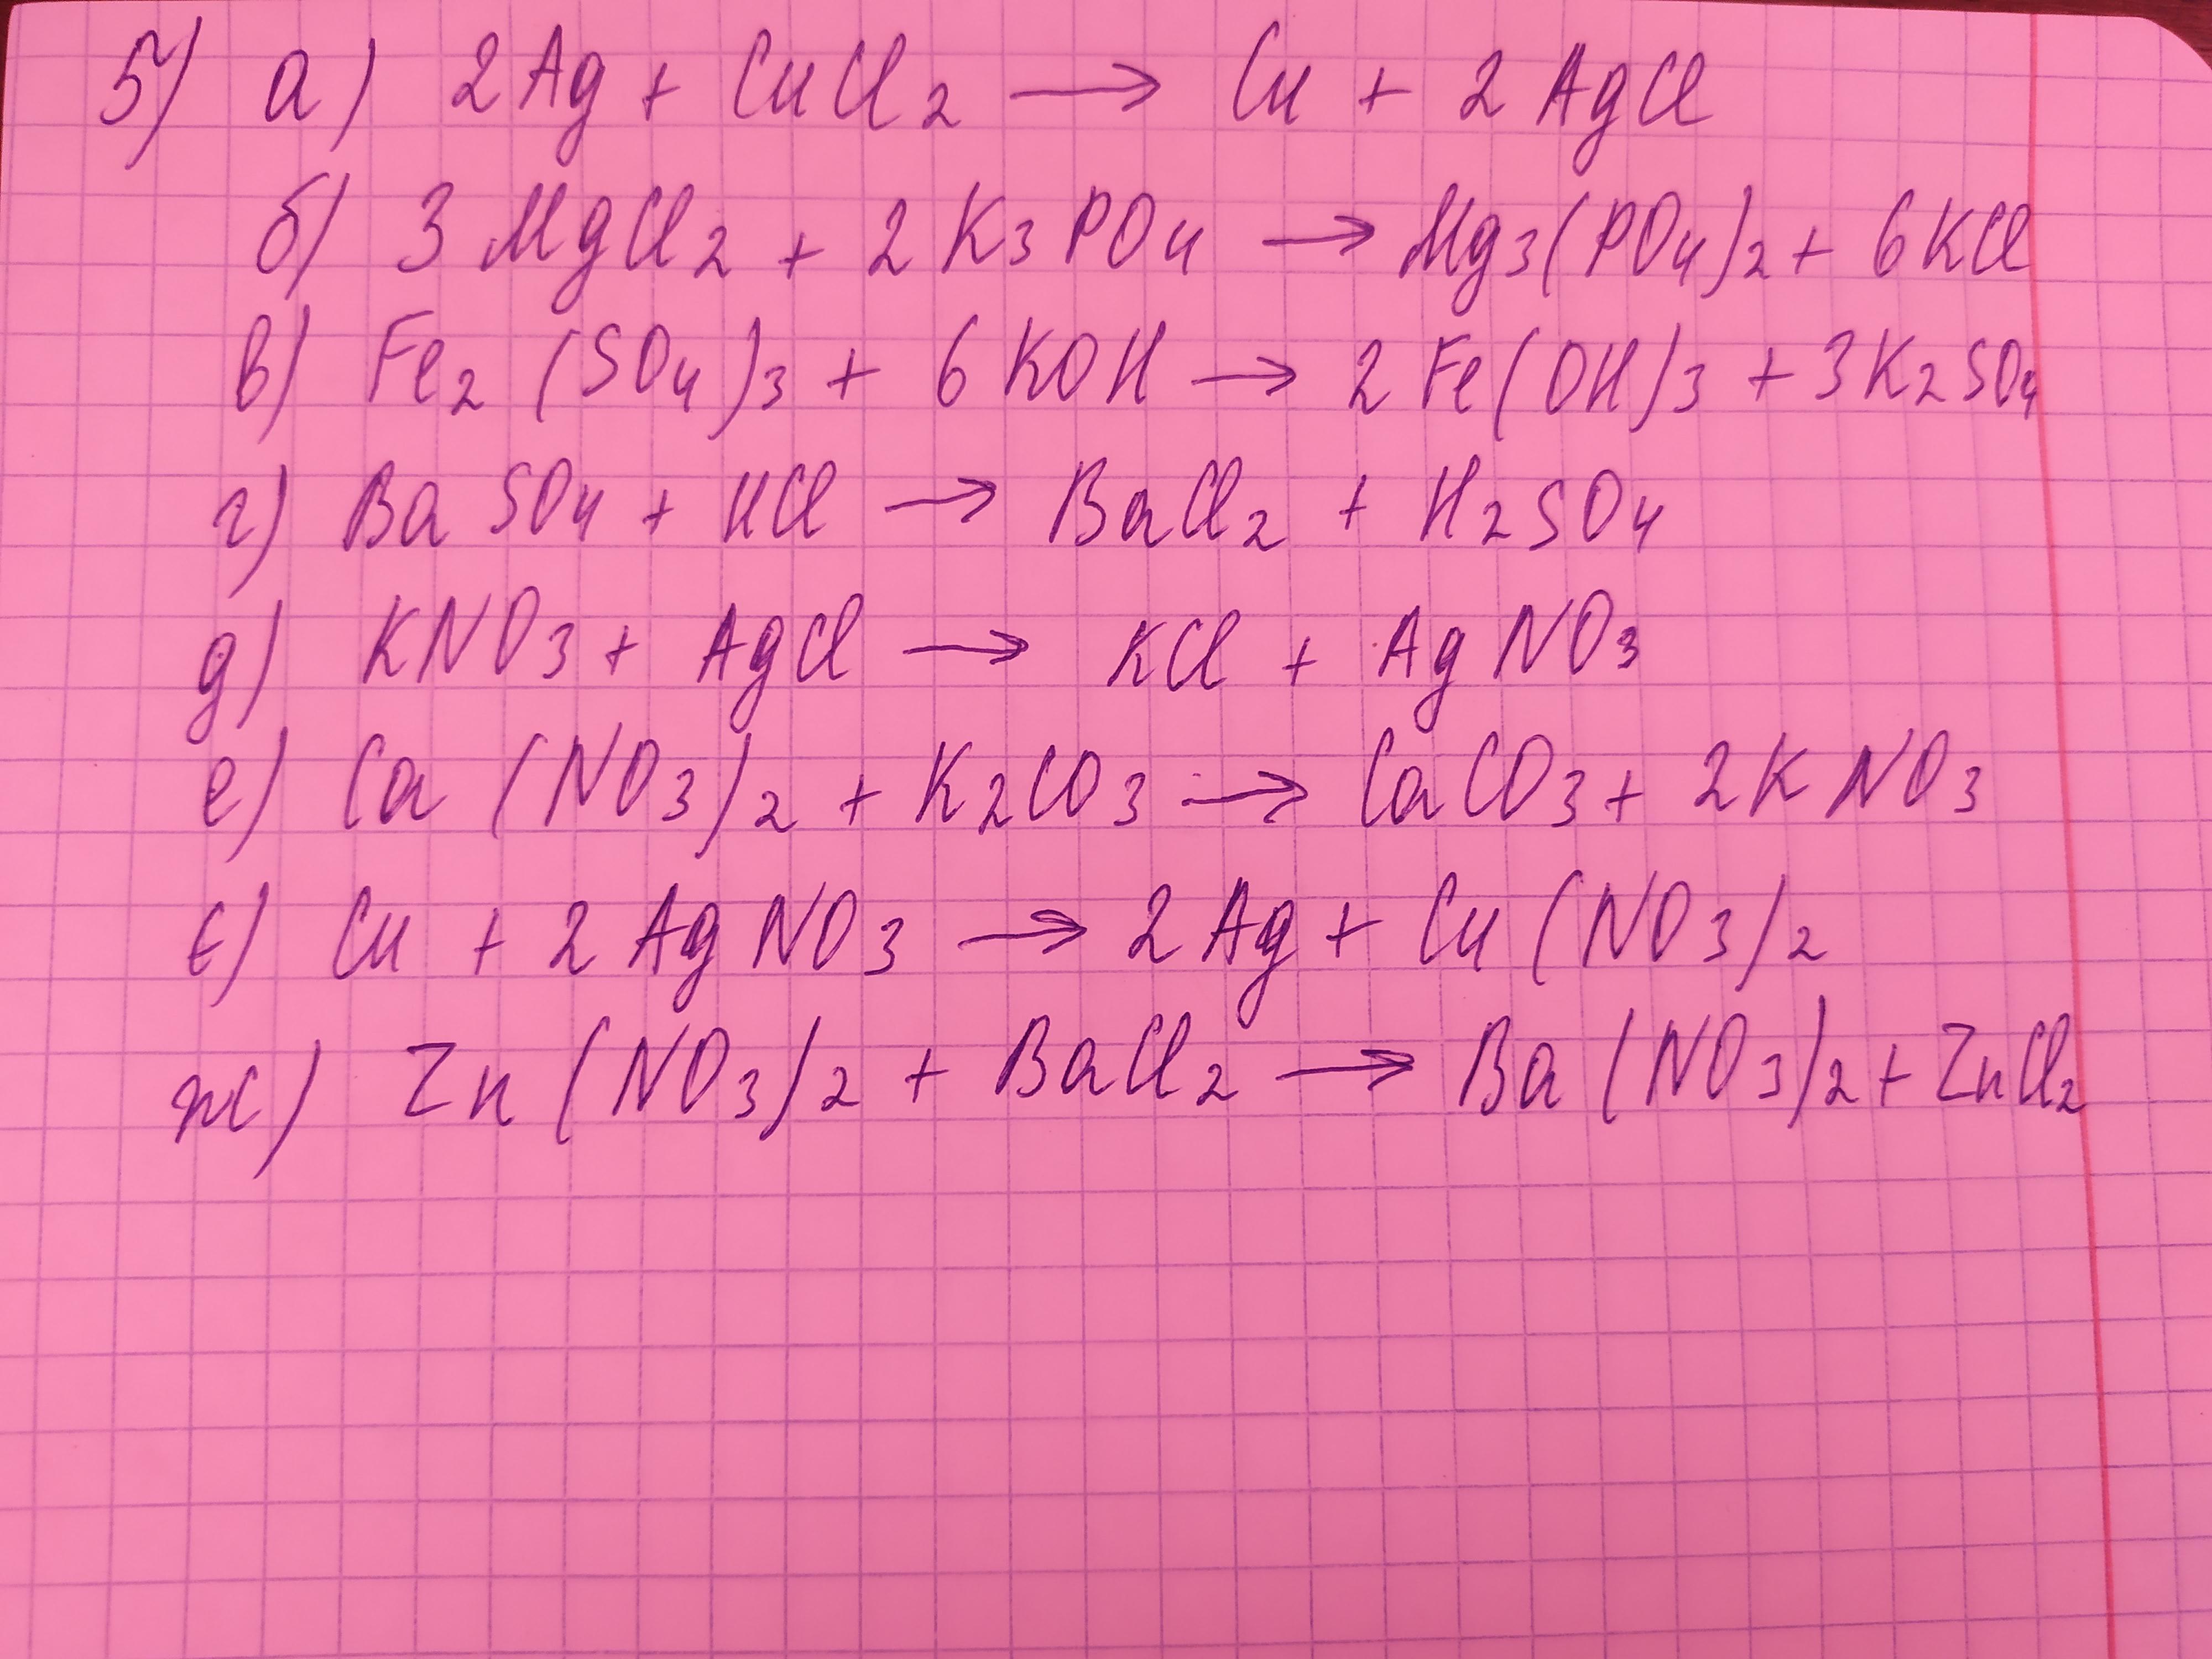 5) а) 2Ag + CuCl2 → Cu + 2AgCl
б) 3MgCl2 + 2K3PO4 → Mg3(PO4)2 + 6KCl
в) Fe2(SO4)3 + 6KOH → 2Fe(OH)3 + 3K2SO4
г) BaSO4 + HCl → BaCl2 + H2SO4
д) KNO3 + AgCl → KCl + AgNO3
е) Ca(NO3)2 + K2CO3 → CaCO3 + 2KNO3
є) Cu + 2AgNO3 → 2Ag + Cu(NO3)2
ж) Zn(NO3)2 + BaCl2 → Ba(NO3)2 + ZnCl2